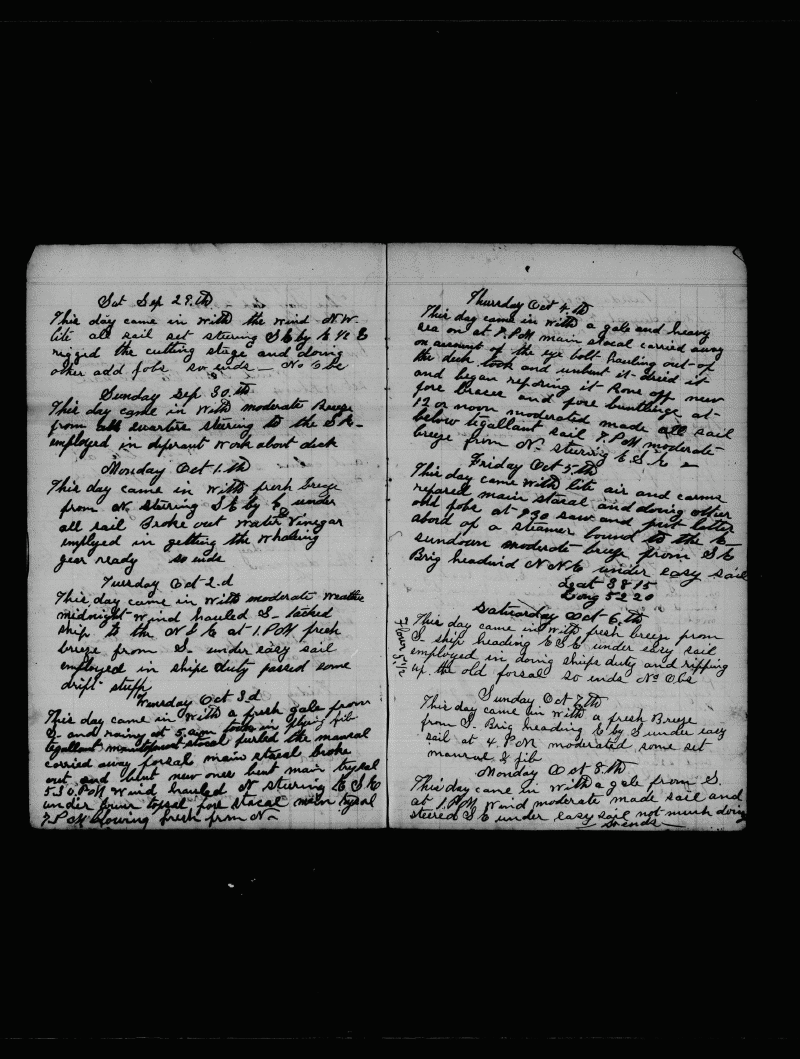 Sat Sep 29.th
This day came in with the wind N.W.
lite all sail set steering S E by E 1/2 E
rigged the cutting stage and doing
other add jobs so ends — No Obs
Sunday Sep 30.th
This day came in with moderate breeze
from all quarters steering to the S E-
employed in diferant work about deck
Monday Oct 1.th
This day came in with fresh breeze
from N. steering S E by E under
all sail Broke out Water Vinegar
emplyed in getting the whaling
gear ready so ends
Tuesday Oct 2.d
This day came in with moderate weather
midnight wind hauled S- tacked
ship to the N & E at 1.P.M fresh
breeze from S- under easy sail
employed in ships duty passed some
drift stuff
Wensday Oct 3.d
This day came in with a fresh gale from
S- and rainy at 5.am took in flying jib
tgallant stasal furled the mansal
carried away forsal main stasal broke
out and bent new ones bent main trysal
5.30 P.M Wind hauled N steering E S E
under topsal fore stasal main trysal
7.P.M blowing fresh from N-
Thursday Oct 4.th
This day came in with a gale and heavy
sea on at 7.P.M main stasal carried away
on account of the eye bolt hauling out of
the deck took and unbent it dried it
and began reparing it Rove off new
fore braces and fore buntlings at-
12 or noon moderated made all sail
below tgallant sail 7.P.M moderate
breeze from N- steering E.S.E -
Friday Oct 5.th
This day came with lite air and carms
repared main stasal and doing other
odd jobs at 9.30 saw and put letter
abord of a steamer bound to the E
sundown moderate breeze from S E
Brig headind N N E under easy sail
Laat 38 15
Long 52 20
Saturday Oct 6.th
Flour 5 1/2
This day came in with fresh breeze from
S- ship heading E S E under easy sail
employed in doing ships duty and ripping
up the old forsal so ends No Obs
Sunday Oct 7.th
This day came in with a fresh Breeze
from S. Brig heading E by S under easy
sail at 4. P.M moderated some set
mansal & jib
Monday Oct 8.th
This day came in with a gale from S.
at 1.P.M Wind moderate made sail and
steered S E under easy sail not much doing
So ends